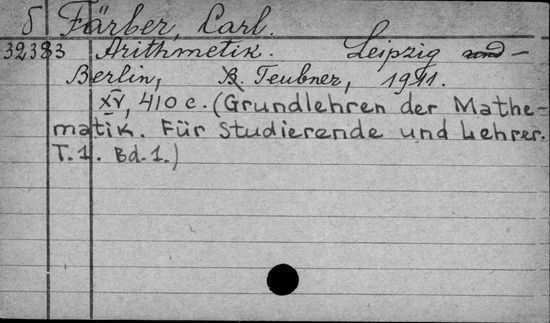 б Färber, Carl.
32383 Arithmetik. Leipzig und –
Berlin, B. Teubner, 1911.
XV, 410 c. (Grundlehren der Mathe-
matik. Für Studierende und Lehrer.
T.1. Bd.1.)